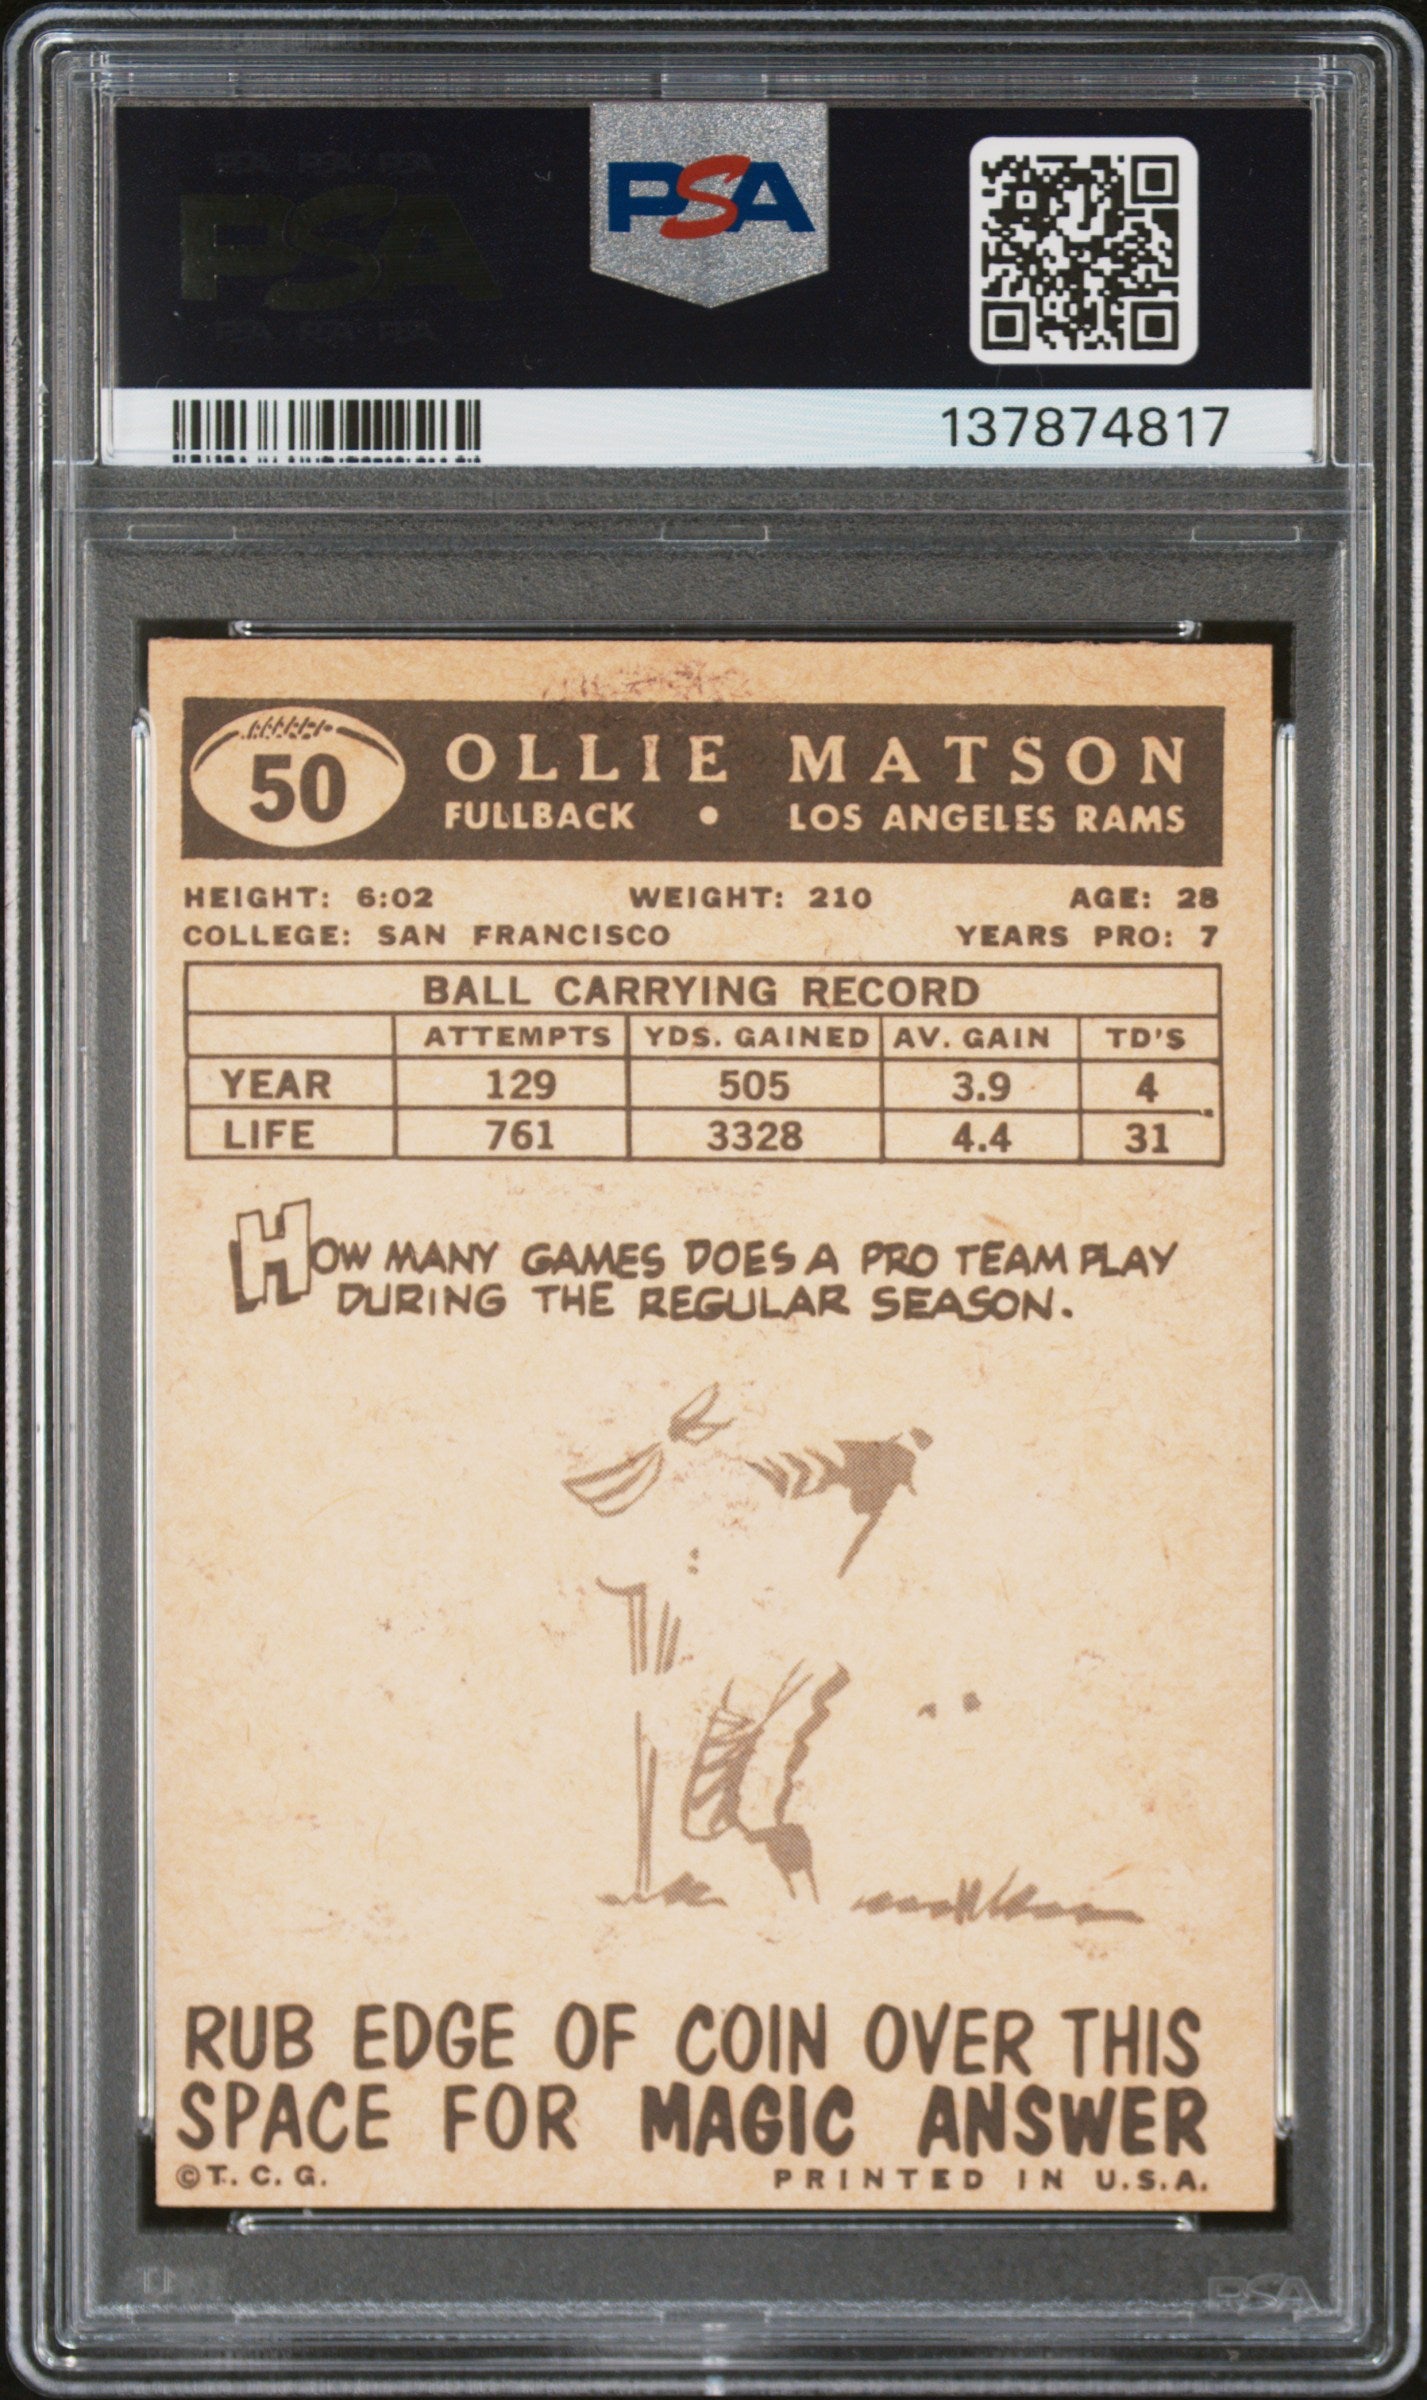 PSA PSA PSA
PSA
PSA PSA PSA
PSA
137874817
50
OLLIE MATSON
FULLBACK • LOS ANGELES RAMS
HEIGHT: 6:02 WEIGHT: 210 AGE: 28
COLLEGE: SAN FRANCISCO YEARS PRO: 7
BALL CARRYING RECORD
ATTEMPTS YDS. GAINED AV. GAIN TD'S
YEAR 129 505 3.9 4
LIFE 761 3328 4.4 31
HOW MANY GAMES DOES A PRO TEAM PLAY
DURING THE REGULAR SEASON.
RUB EDGE OF COIN OVER THIS
SPACE FOR MAGIC ANSWER
©T. C. G. PRINTED IN U.S.A.
PSA